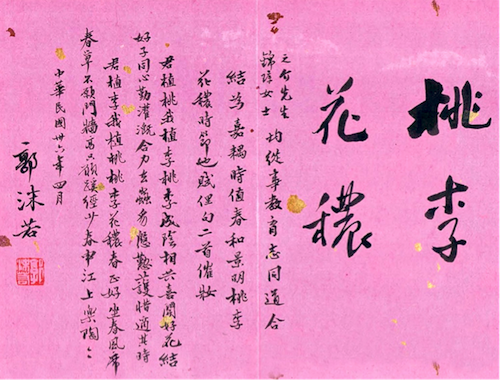 桃李
花穠
之竹先生
錦女士
均從事教育志同道合
結為嘉耦時值春和景明桃李
花穠時節也賦俚句二首催妝
君植桃我植李桃李成陰相共喜開好花結
好子同心勤灌溉合力去蟲護惜適其時
君植李我植桃桃李花穠春正好坐春風席
春草不願門牆只願少春申江上樂陶々
中華民國卅六年四月
郭沫若